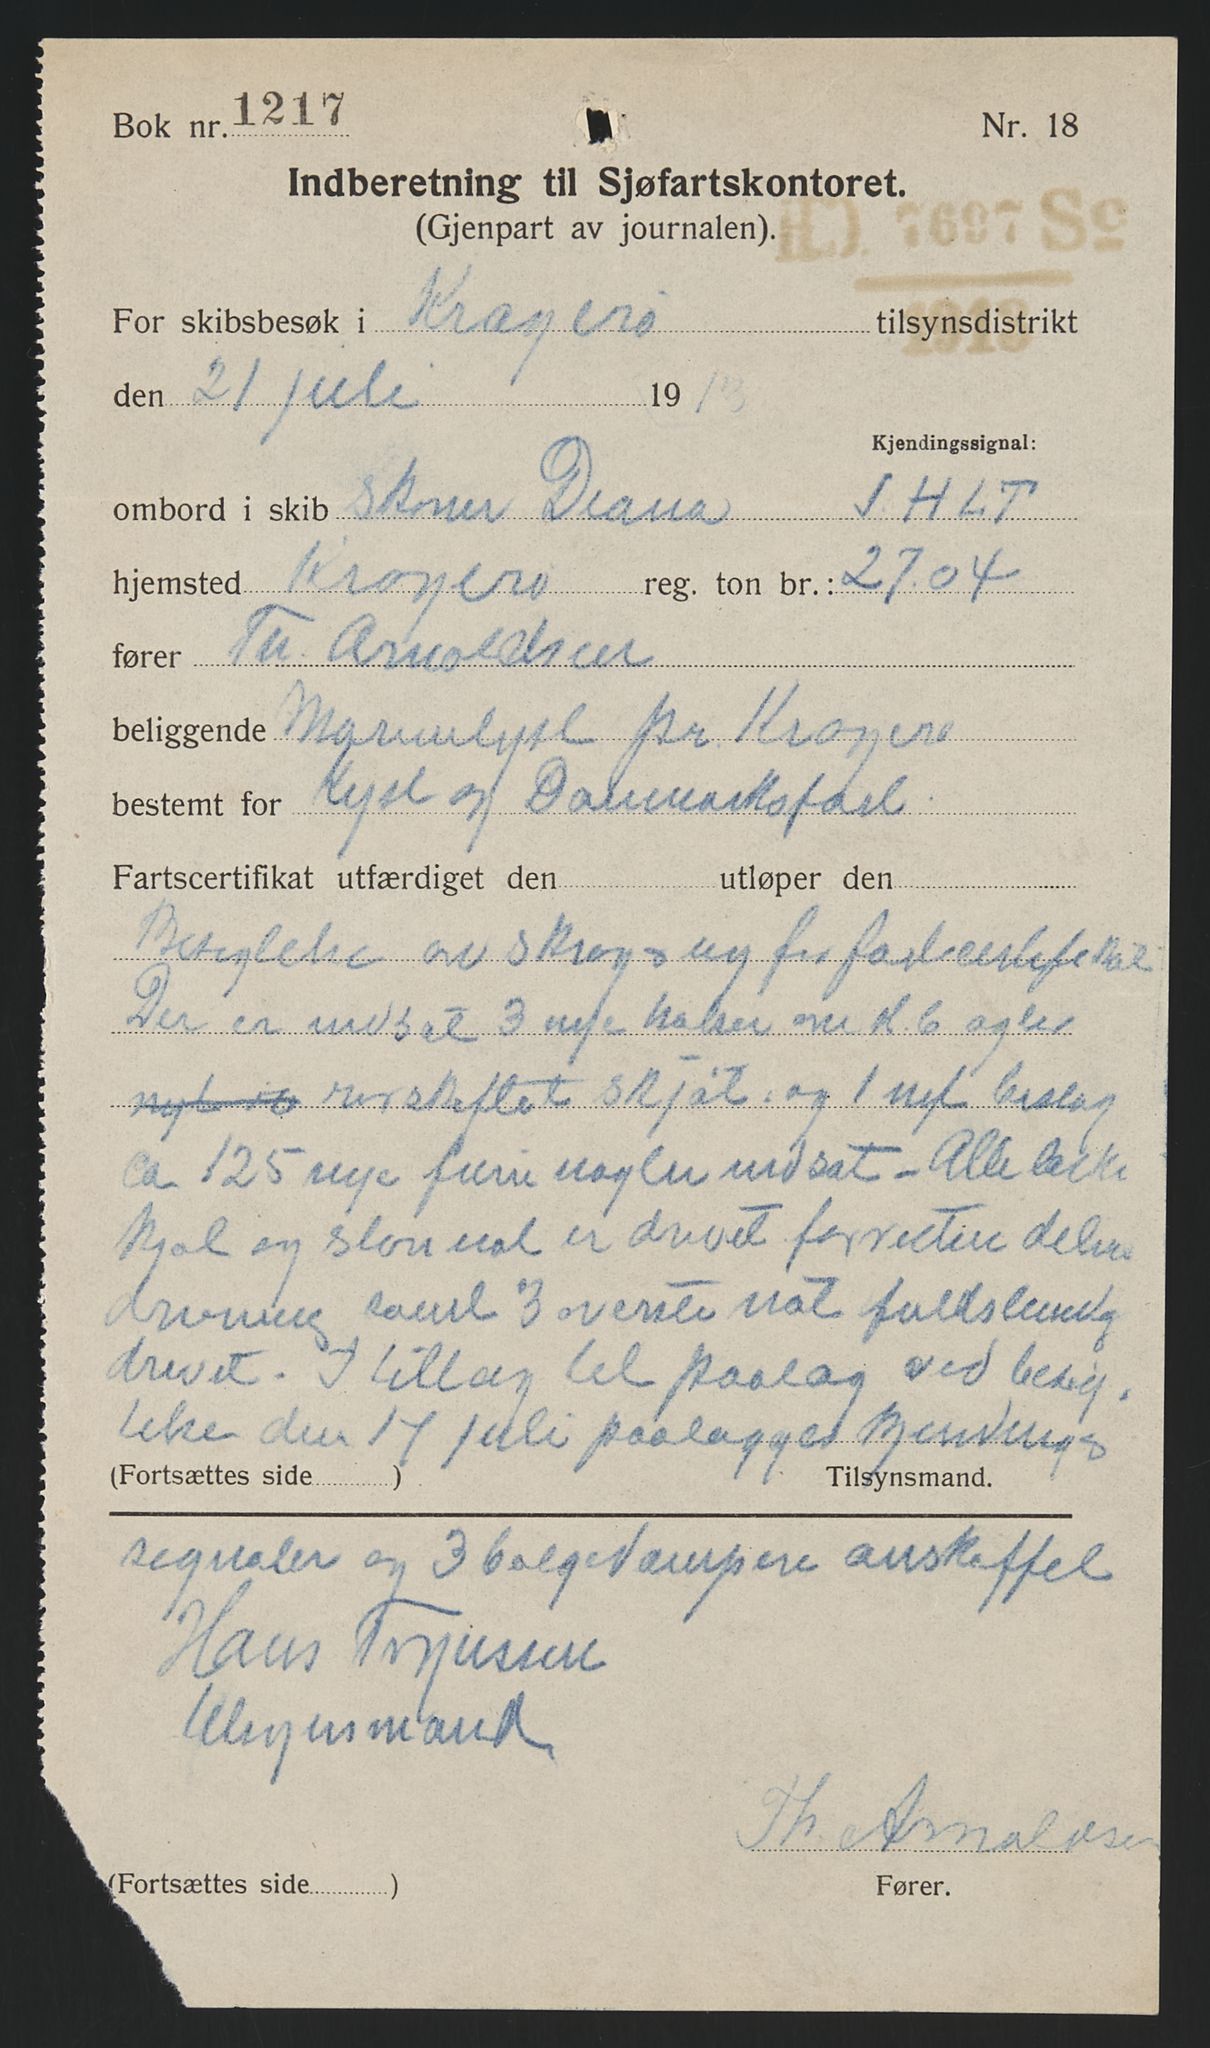 Bok nr. 1217
Nr. 18
Indberetning til Sjøfartskontoret.
(Gjenpart av journalen).
(L). 7697 Sc
1913
For skibsbesøk i Kragerø tilsynsdistrikt
den 21 juli 1913
Kjendingssignal:
ombord i skib Skoner Diana J.HLT
hjemsted Kragerø reg. ton br.: 27.04
fører Th. Arnoldsen
beliggende Marienlyst pr. Kragerø
bestemt for Kyst og Danmarksfart.
Fartscertifikat utfærdiget den utløper den
Besigtelse av skrog
Der er indsat 3 nye halser
rorskeftet skjöt. og 1 nyt beslag
ca 125 nye furie nagler indsat - Alle
kjøl og nat er drevet forresten
drivning samt 3 överste nat fuldstendig
drevet. I tillæg til paalæg ved besig.
telse den 17 juli paalægges kjendings
(Fortsættes side )
Tilsynsmand.
signaler og 3 bolgedæmpere anskaffet
Hans Terjessen
tilsynsmand
Th. Arnoldsen
(Fortsættes side )
Fører.